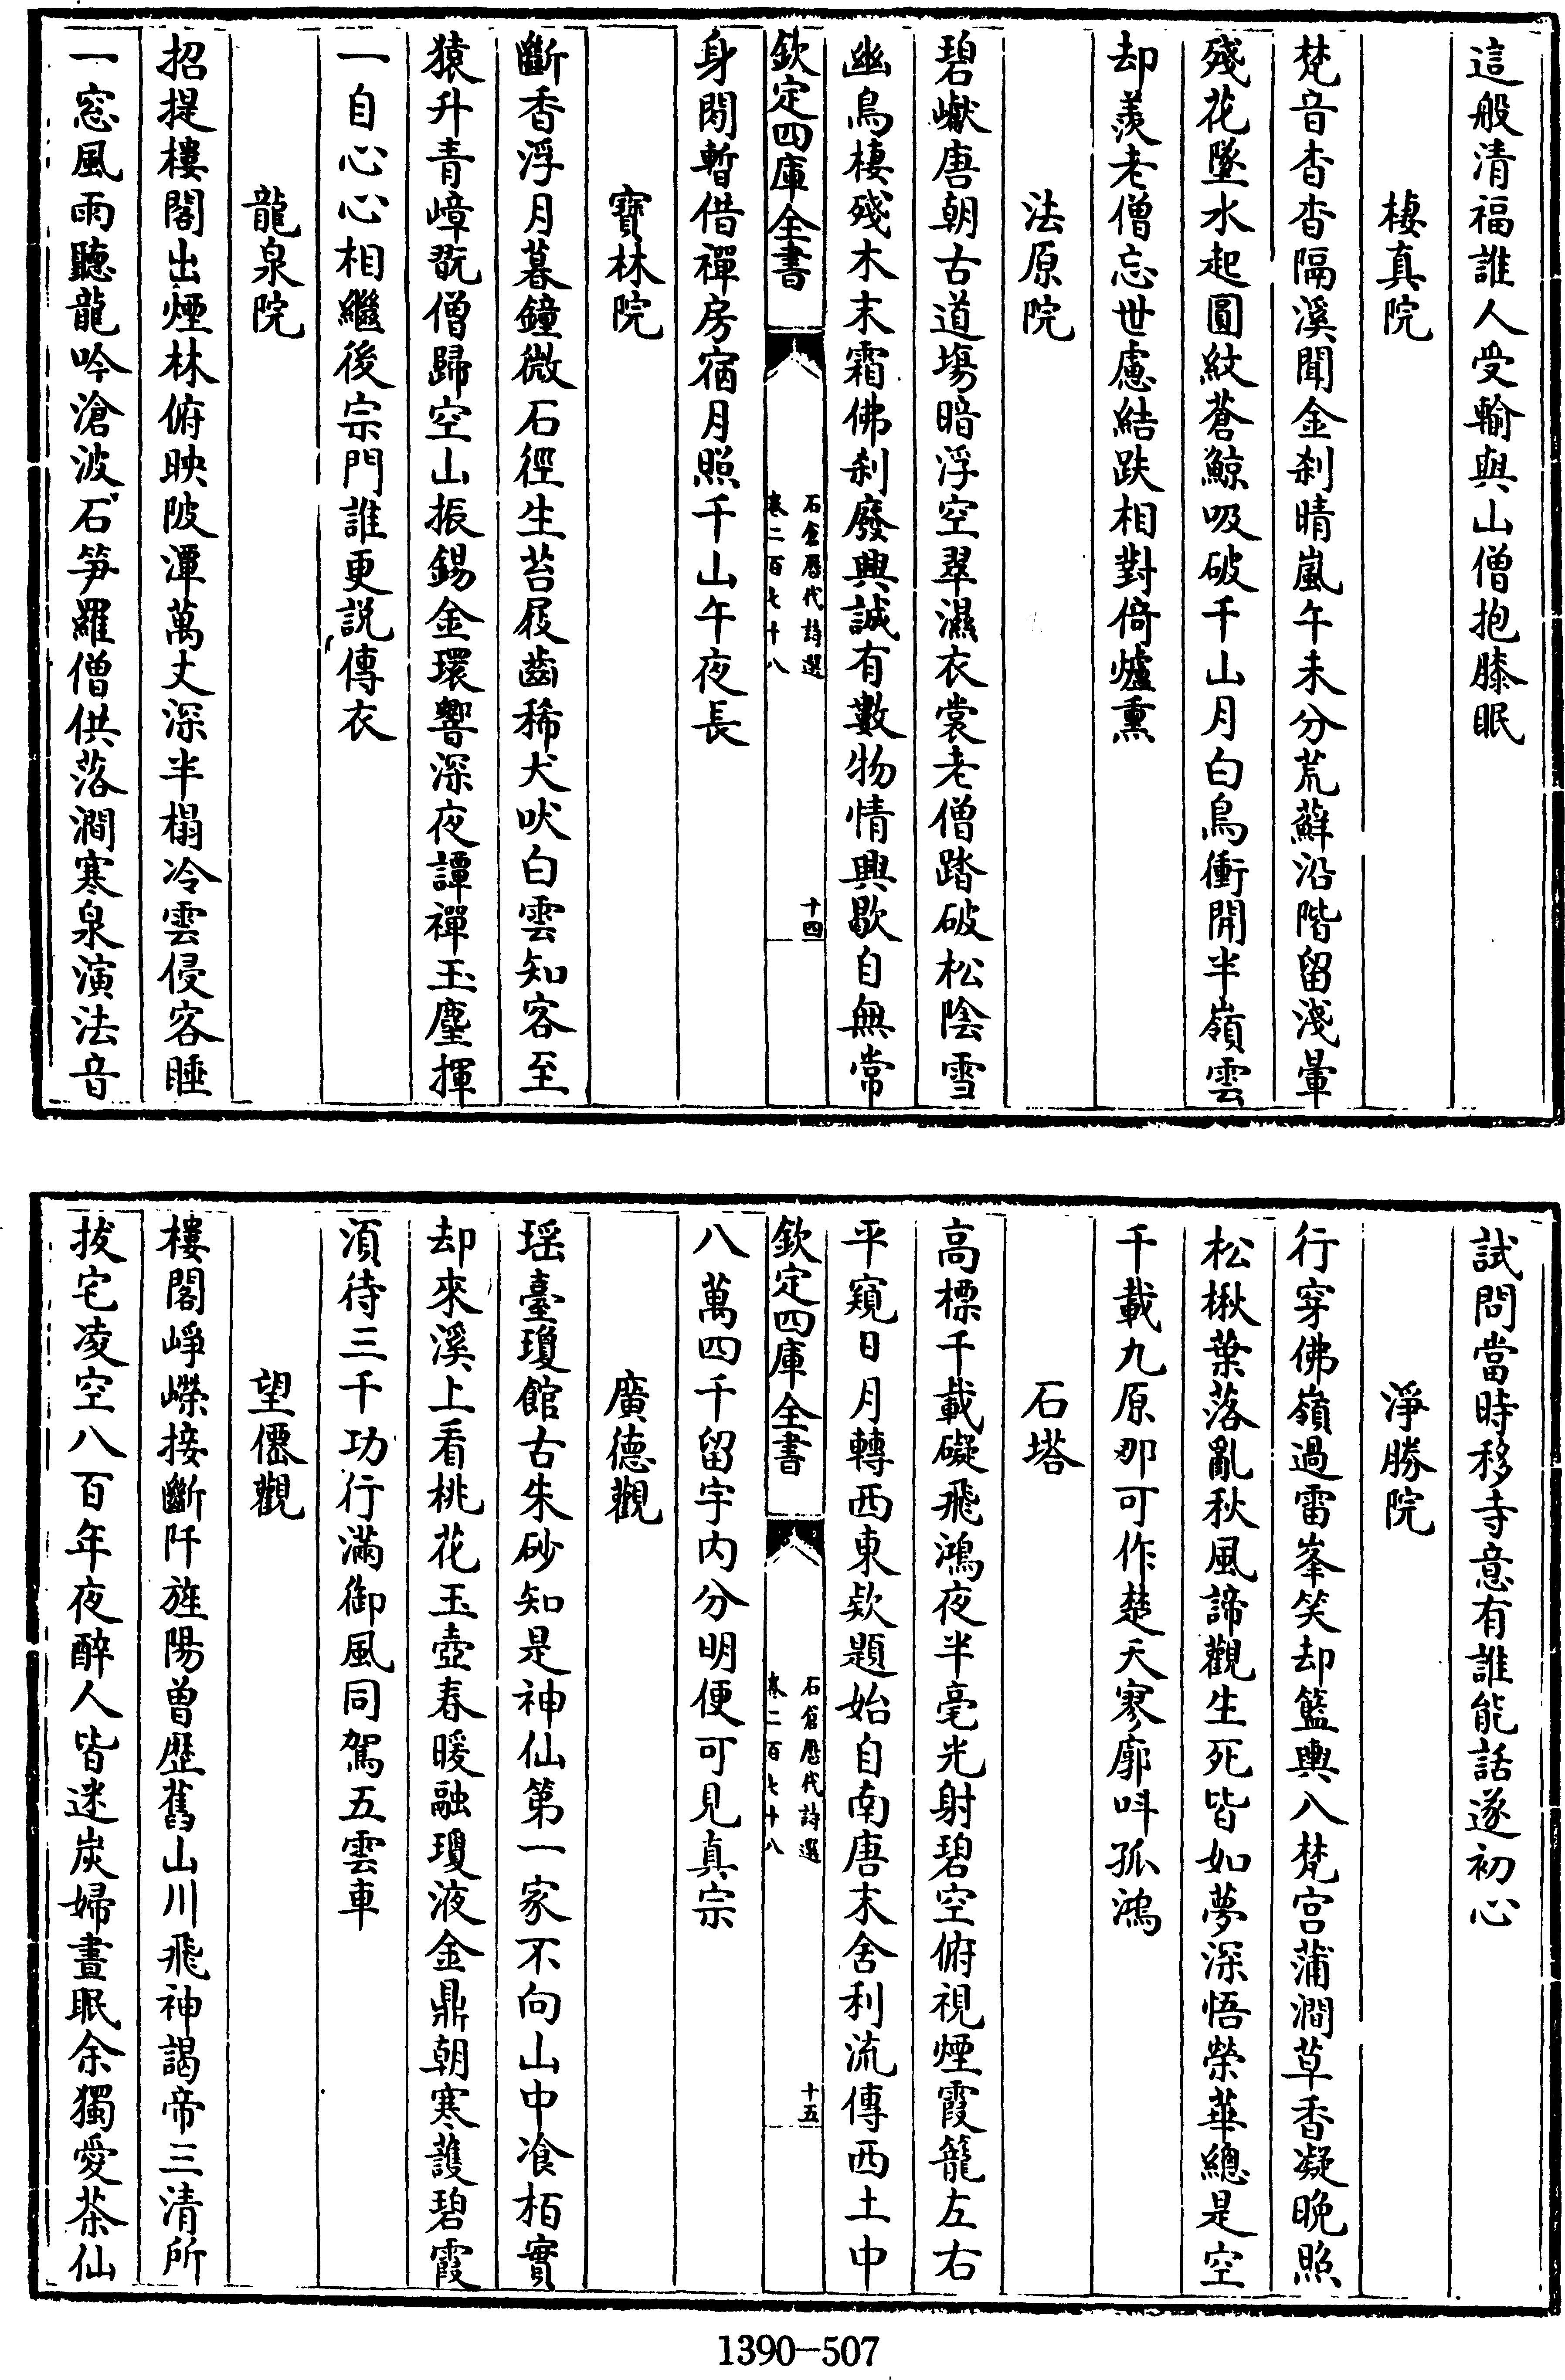 這般清福誰人受輸與山僧抱膝眠
棲真院
梵音杳杳隔溪聞金刹晴嵐午未分荒蘚沿階留淺暈
殘花墜水起圓紋蒼鯨吸破千山月白鳥衝開半嶺雲
却羨老僧忘世慮結趺相對倚爐熏
法原院
碧巘唐朝古道塲暗浮空翠濕衣裳老僧踏破松陰雪
幽鳥棲殘木末霜佛刹廢興誠有數物情興歇自無常
欽定四庫全書
石倉歷代詩選
卷二百七十八
十四
身閒暫借禪房宿月照千山午夜長
寳林院
斷香浮月暮鐘微石徑生苔屐齒稀犬吠白雲知客至
猿升青嶂翫僧歸空山振錫金環響深夜譚禪玉麈揮
一自心心相繼後宗門誰更説傳衣
龍泉院
招提樓閣出煙林俯映陂潭萬丈深半榻冷雲侵客睡
一窓風雨聽龍吟滄波石笋羅僧供落澗寒泉演法音
試問當時移寺意有誰能話遂初心
淨勝院
行穿佛嶺過雷峯笑却籃輿八梵宫蒲澗草香凝晚照
松楸葉落亂秋風諦觀生死皆如夢深悟榮華總是空
千載九原那可作楚天寥廓呌孤鴻
石塔
高標千載礙飛鴻夜半毫光射碧空俯視煙霞籠左右
平窺日月轉西東欵題始自南唐末舍利流傳西土中
欽定四庫全書
石倉歷代詩選
卷二百七十八
十五
八萬四千留宇内分明便可見真宗
廣德觀
瑶臺瓊館古朱砂知是神仙第一家不向山中飡栢實
却來溪上看桃花玉壺春暖融瓊液金鼎朝寒䕶碧霞
湏待三千功行滿御風同駕五雲車
望僊觀
樓閣崢嶸接斷阡旌陽曽歴舊山川飛神謁帝三清所
拔宅凌空八百年夜醉人皆迷炭婦晝眠余獨愛茶仙
1390-507